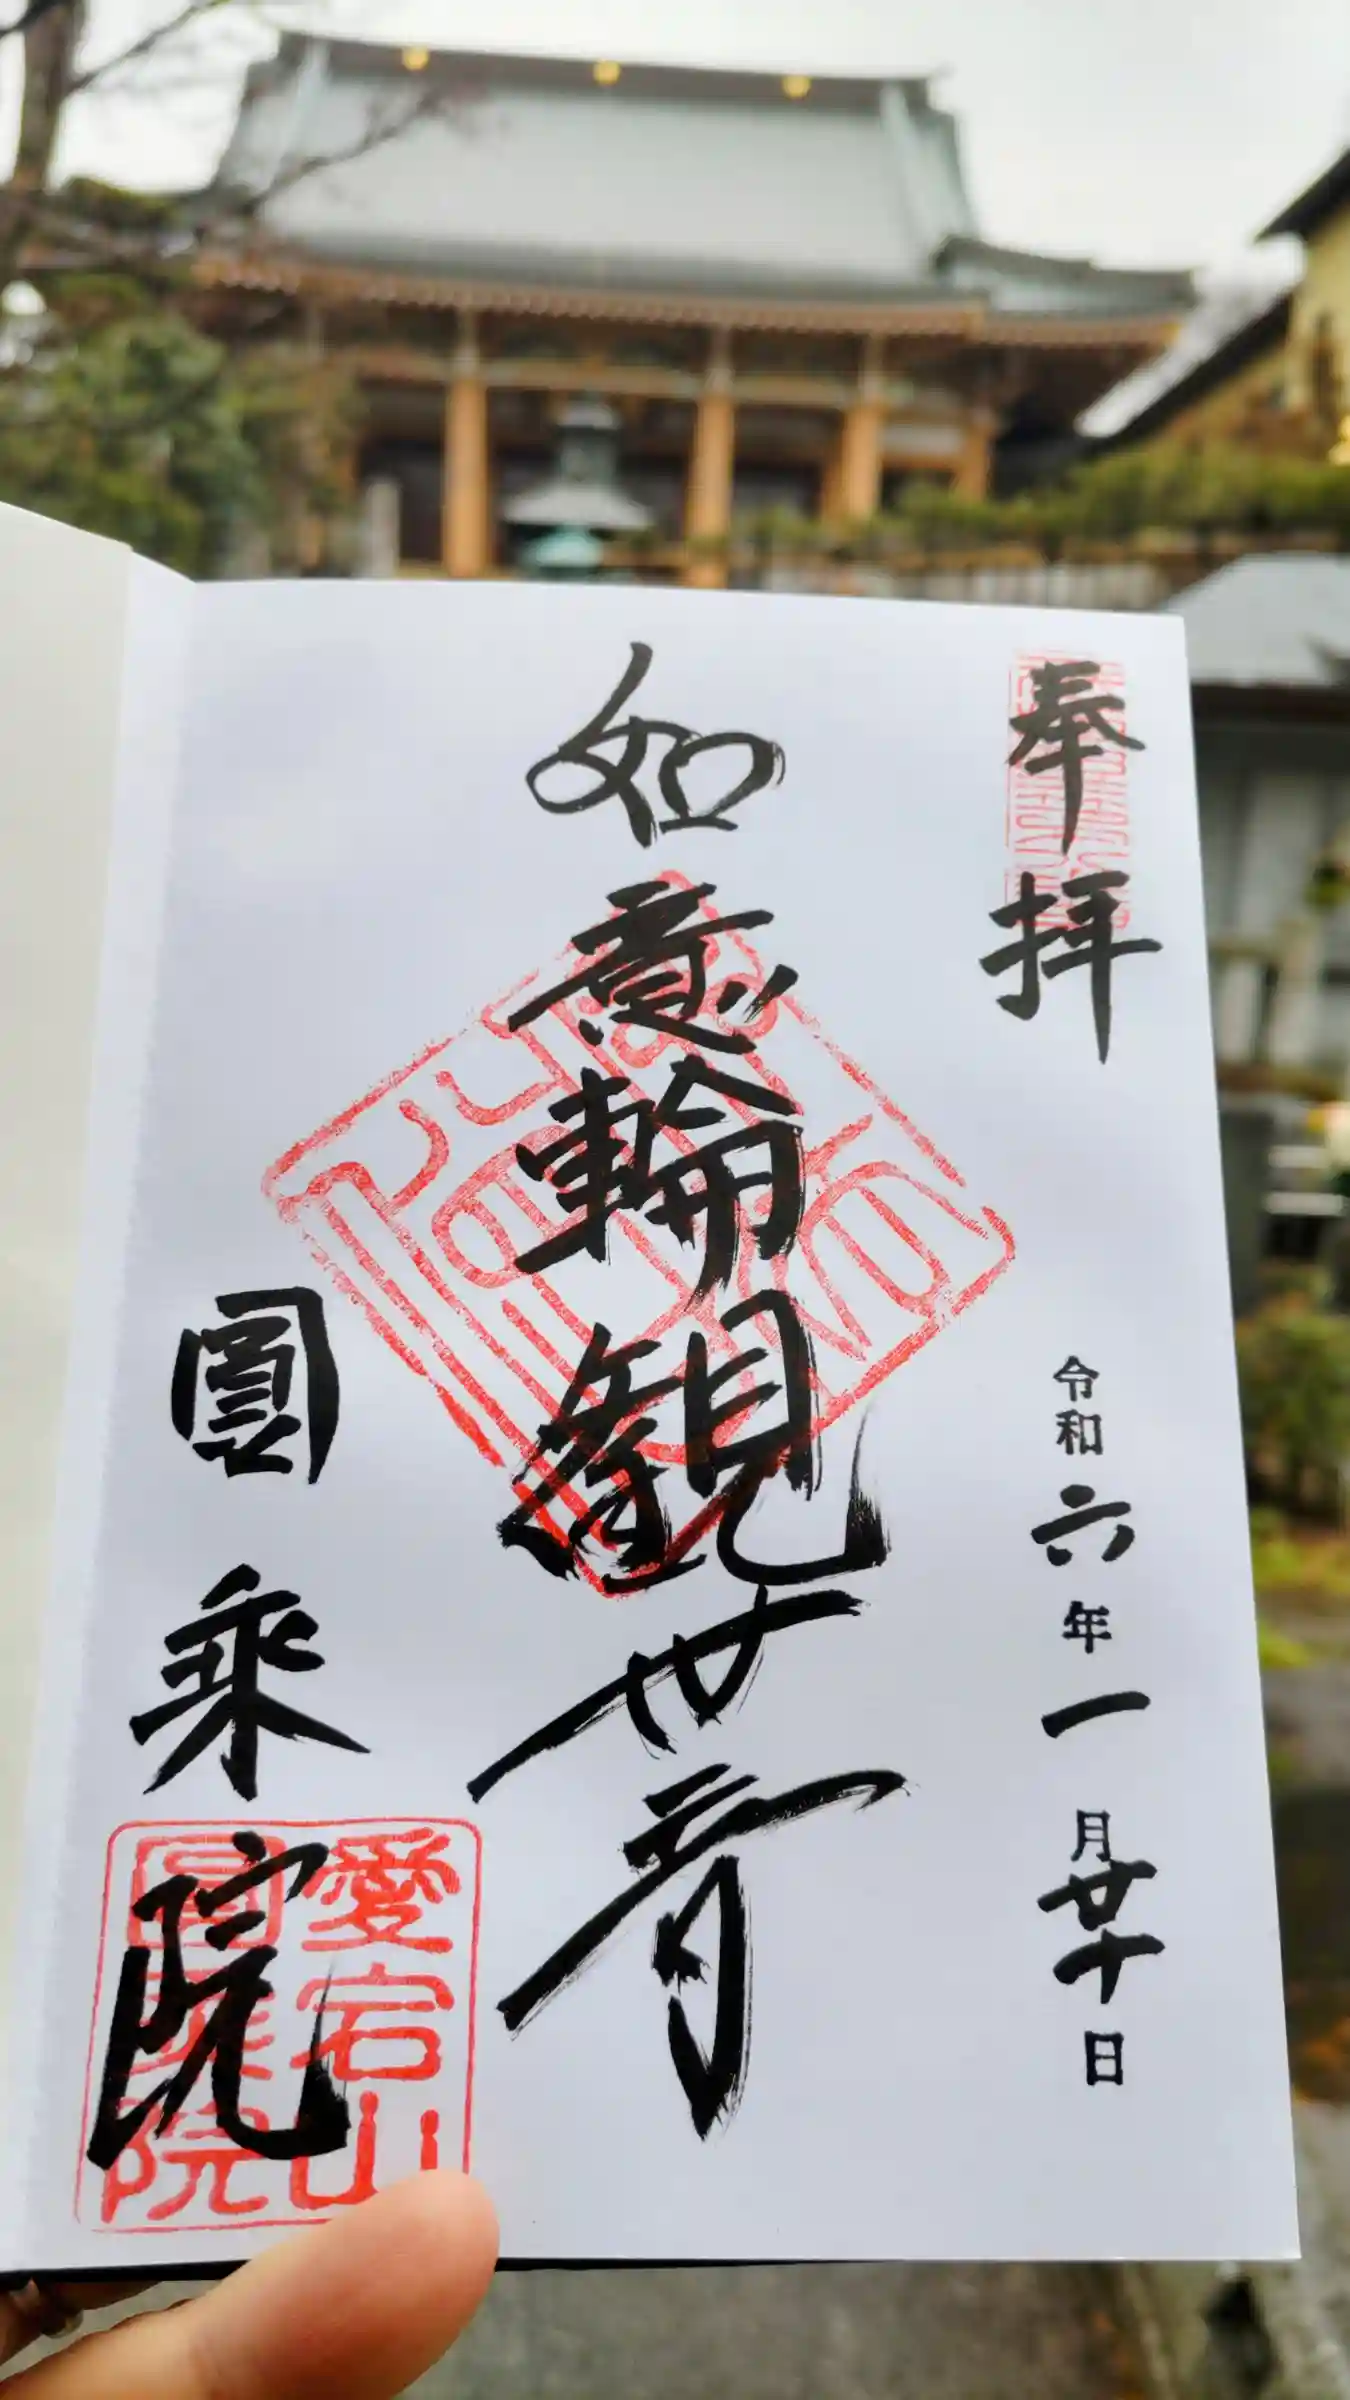 奉拝
令和六年一月廿十日
如意輪観世音
圓乘院
愛宕山
圓乘院